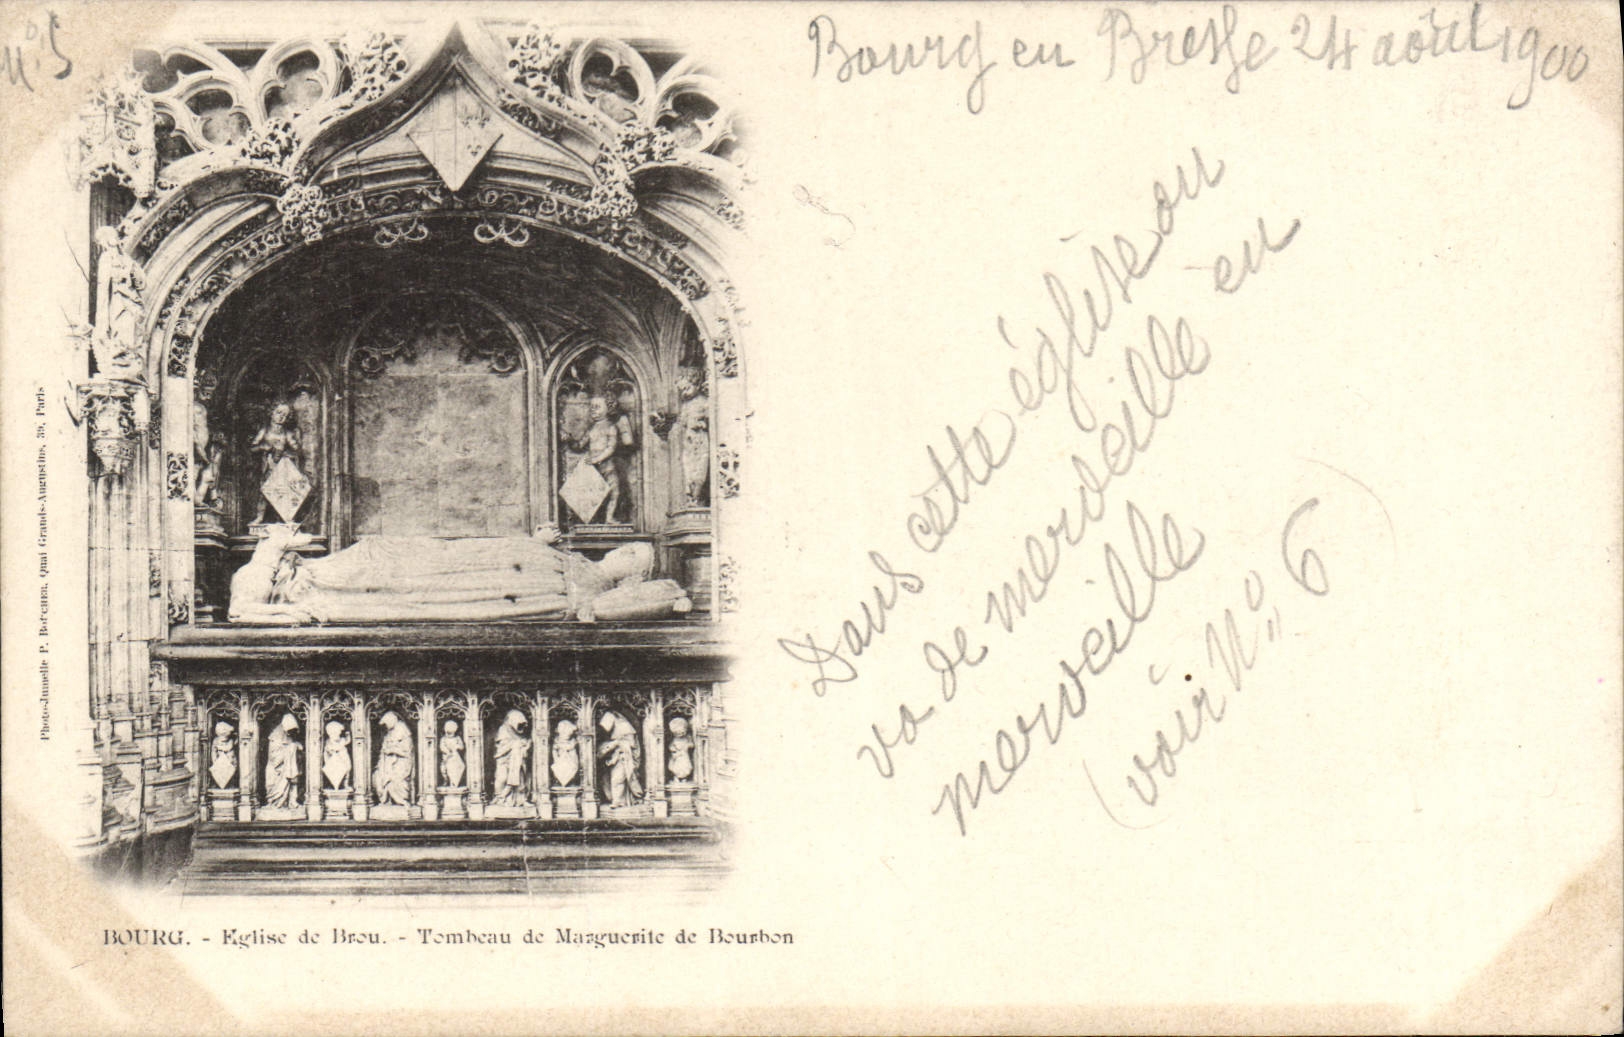 No. 5
Bourg en Bresse 24 août 1900
Dans cette église on
va de merveille en
merveille
(voir No. 6)
Photo-Jumelle P. Boucher, Quai Grands-Augustins, 39, Paris
BOURG. - Eglise de Brou. - Tombeau de Marguerite de Bourbon